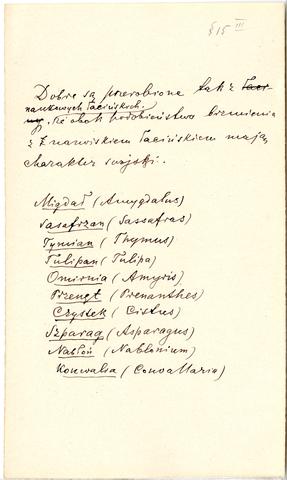 § 15 III
Dobre są przerobione tak z łaci
naukowych łacińskich.
, że obok podobieństwa brzmienia
z nazwiskiem łacińskiem mają
charakter swojski.
Migdał (Amygdalus)
Sasafrzan (Sassafras)
Tymian (Thymus)
Tulipan (Tulipa)
Omirnia (Amyris)
Przengt (Prenanthes)
Czystek (Cistus)
Szparag (Asparagus)
Nabłoń (Nablonium)
Konwalia (Convallaria)